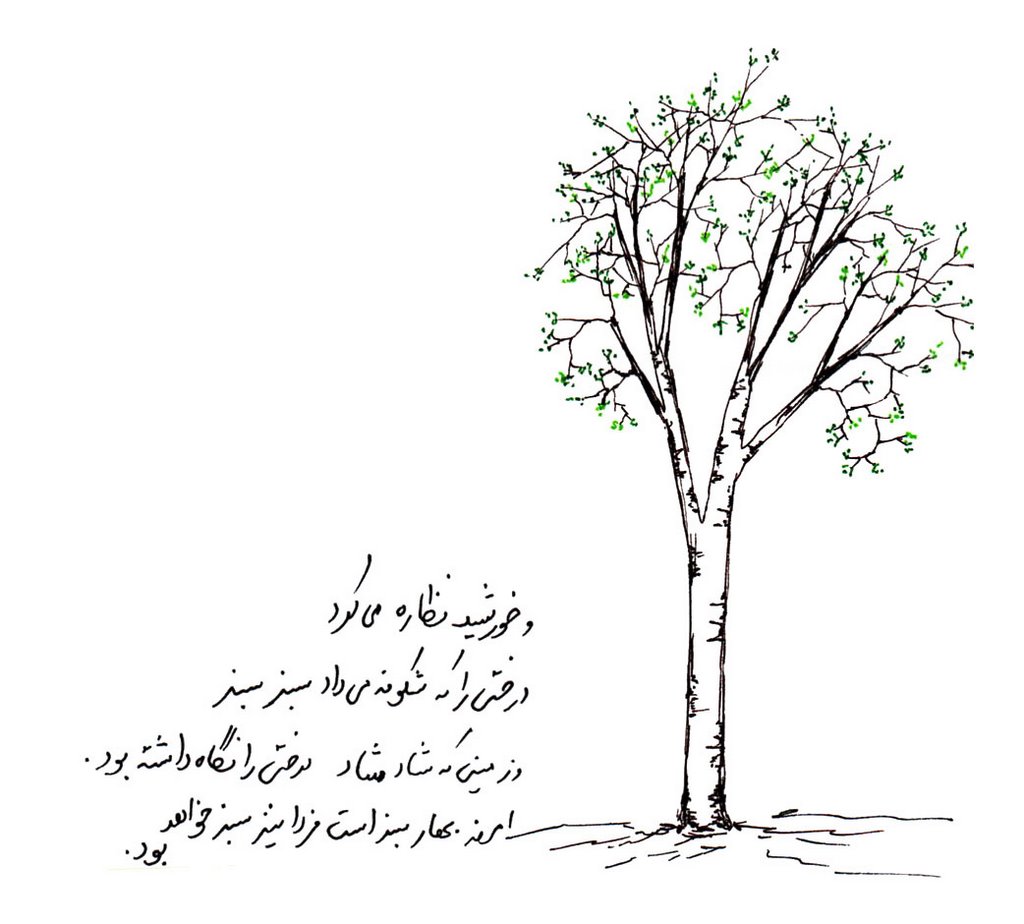 و خورشید نظاره می کرد
درختی را که شکوفه می داد سبز سبز
و زمینی که شاد شاد درختی را نگاه داشته بود.
امروز بهار سبز است فردا نیز سبز خواهد
بود.